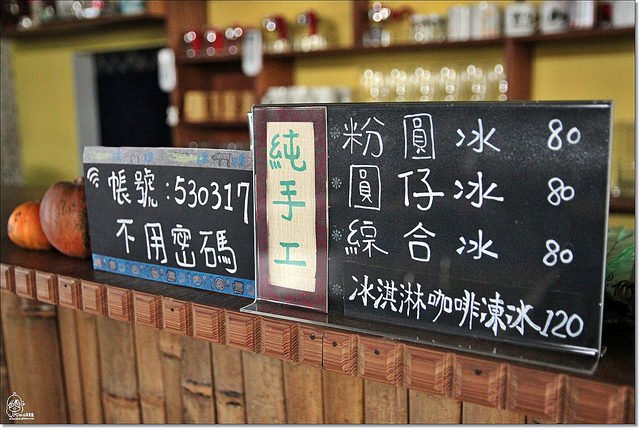 帳號:530317
不用密碼
純手工
粉圓冰 80
圓仔冰 80
綜合冰 80
冰淇淋咖啡凍冰120